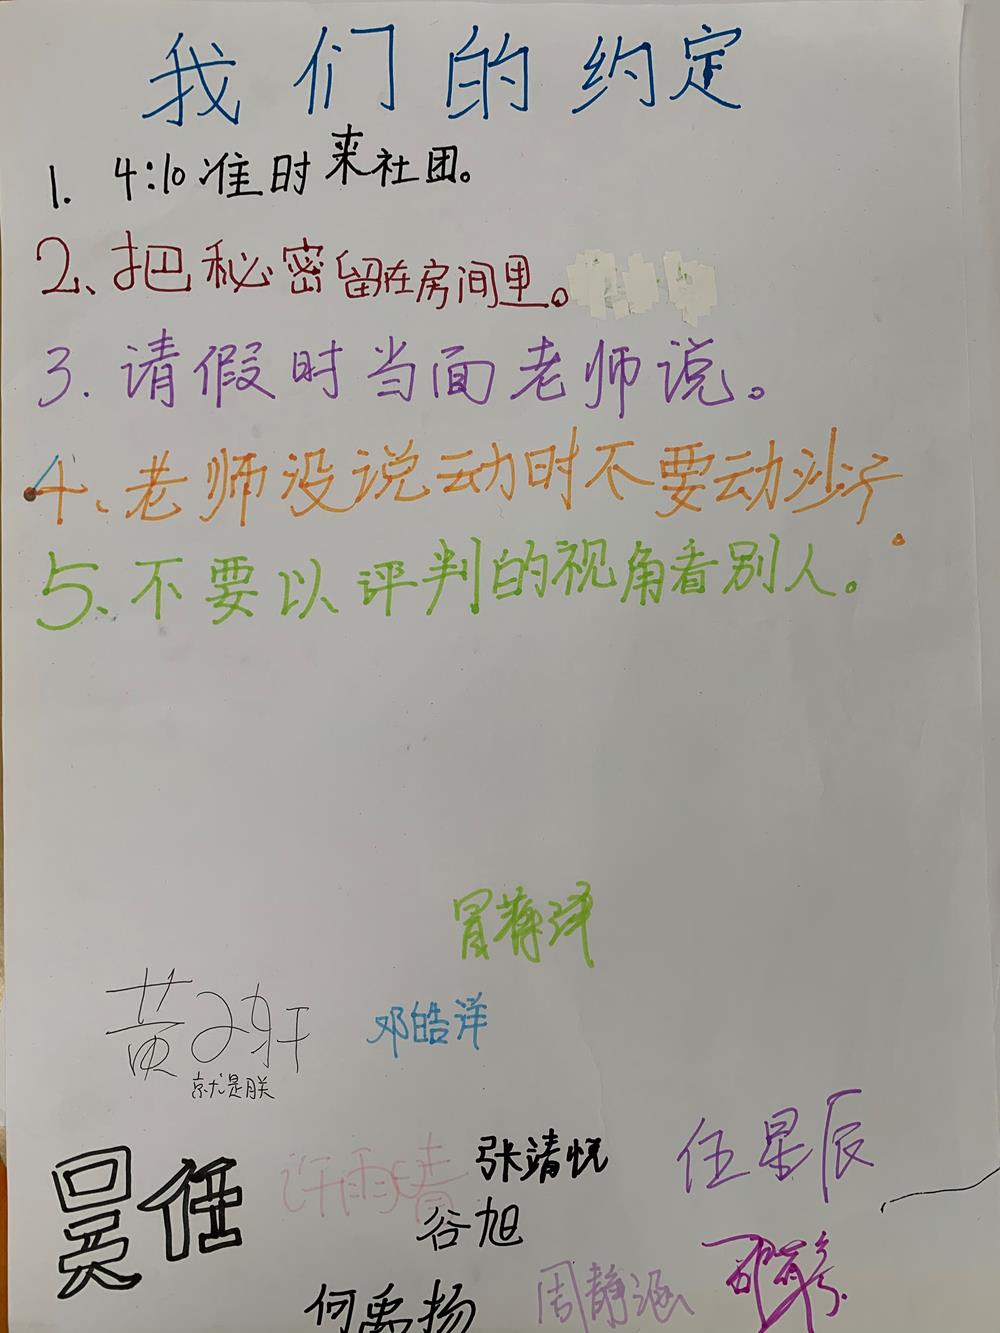 我们的约定
1. 4:10准时来社团。
2、把秘密留在房间里。
3. 请假时当面老师说。
4、老师没说动时不要动沙子.
5、不要以评判的视角看别人。
黄子轩
就是朕
邓皓洋
吴任
许雨春
张靖悦
谷旭
任星辰
何禹扬
周静涵